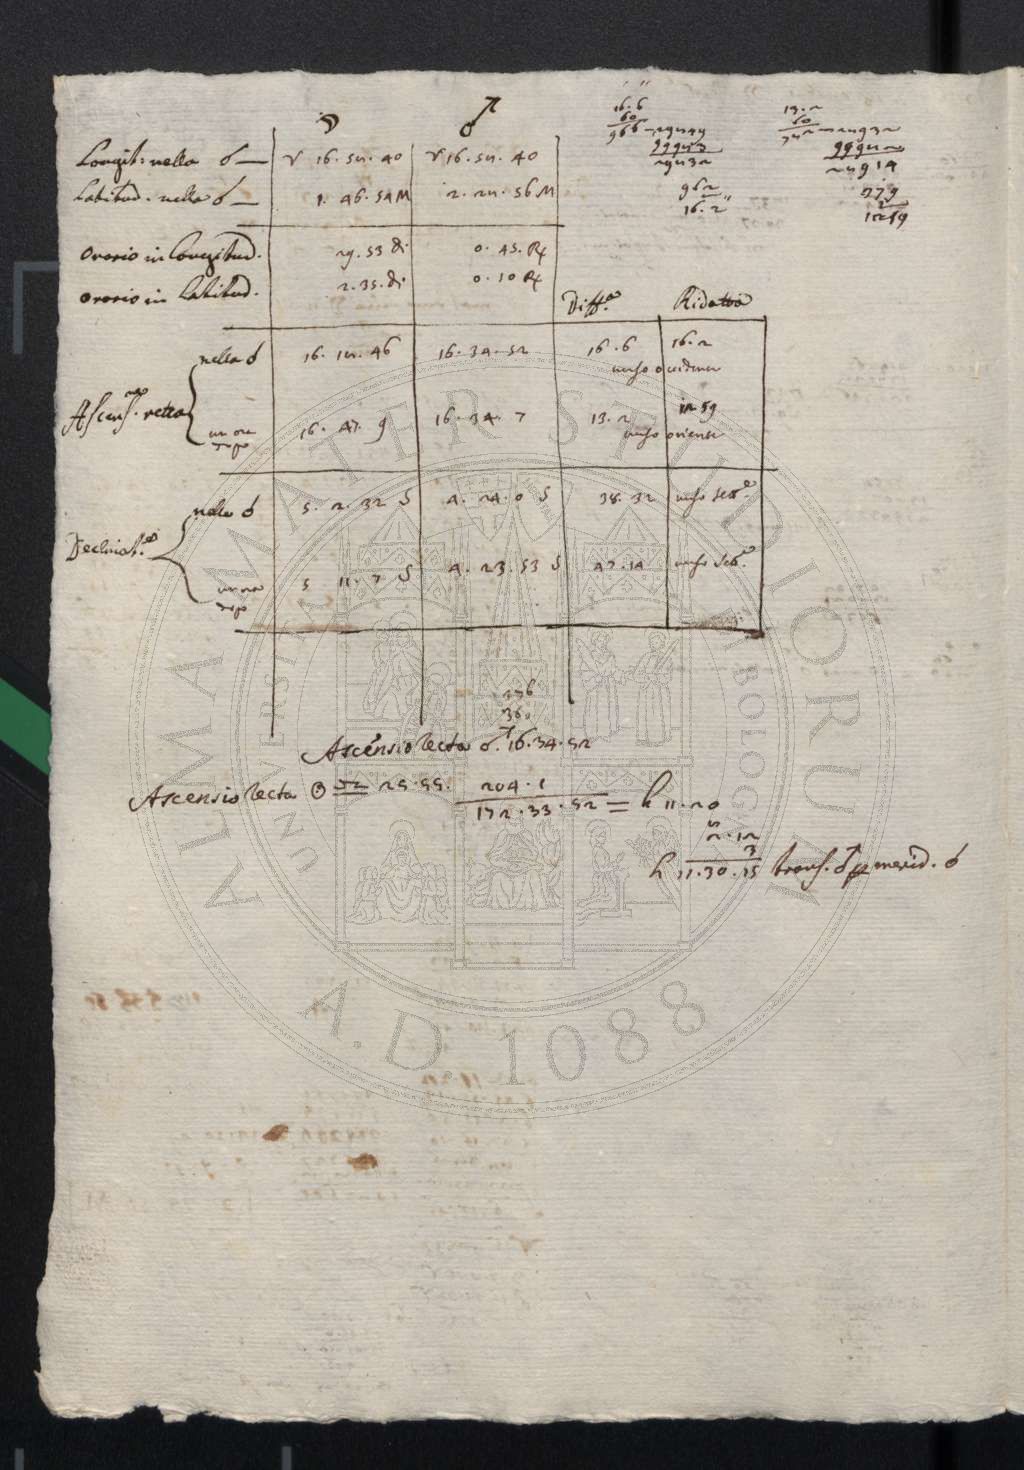 ☽ ♂
Longit: nella ☌ — ♈ 16. 54. 40 ♈ 16. 54. 40
Latitud. nella ☌ — 1. 46. 54 M 2. 24. 56 M
Orario in Longitud. 29. 53 di. 0. 45. R
Orario in Latitud. 2. 35. di. 0. 10 R
Diff.ª Ridotta
nella ☌ 16. 18. 46 16. 34. 52 16. 6 16. 2
verso occidente
Ascens. retta
un ora 16. 47. 9 16. 34. 7 13. 2 12 59
dopo verso oriente
nella ☌ 5. 2. 32 S 4. 24. 0 S 38. 32 verso set.e
Declinat.e
un ora 5 11. 7 S 4. 23. 53 S 47. 14 verso set.e
dopo
16. 6
60
966
962
16. 2
13. 2
60
779
12 59
36
Ascensio recta ♂. 16. 34. 52
Ascensio recta ☉ ♎ 25. 55. 204. 1
172. 33. 52 = h 11. 20
2. 12
3
h 11. 30. 15 trans. ♂ p merid. ☌
ALMA MATER STUDIORUM
UNIVERSITÀ DI BOLOGNA
A.D. 1088